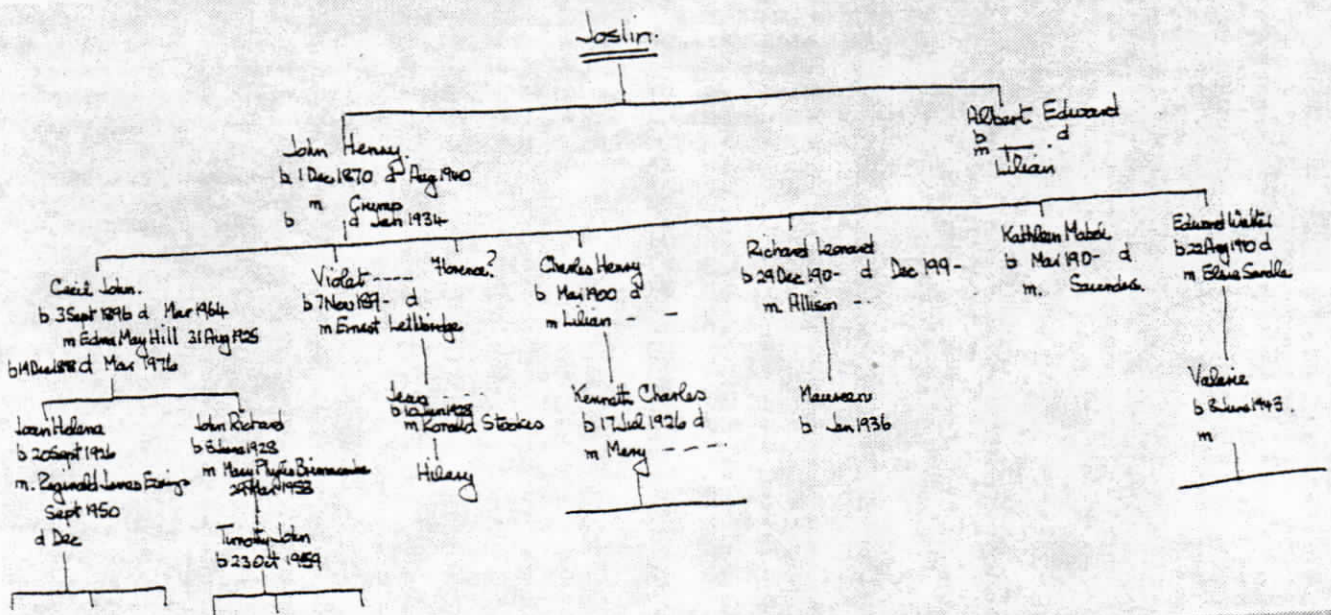 Joslin.
John Henry.
b 1 Dec 1870 d Aug 1940
m Crump
b d Jan 1934
Albert Edward
b d
m
Lilian
Cecil John.
b 3 Sept 1896 d Mar 1964
m Edna May Hill 31 Aug 1925
d Mar 1976
Violet ----
b 7 Nov 189- d
m Ernest Lethbridge
Florence?
Charles Henry
b Mar 1900 d
m Lilian - -
Richard Leonard
b 29 Dec 190- d Dec 199-
m Allison -
Kathleen Mabel
b Mar 190- d
m. Saunders.
Edward Walter
b 22 Aug 1910 d
m Elsie Sandle
Joan Helena
b 20 Sept 1926
m. Reginald James
Sept 1950
d Dec
John Richard
b 8 June 1928
m Mary Phyllis Brimacombe
Mar 1953
Timothy John
b 23 Oct 1959
Jean
m Ronald Stookes
Hilary
Kenneth Charles
b 17 Jul 1926 d
m Mary ----
Maureen
b Jan 1936
Valerie
b 8 June 1943.
m